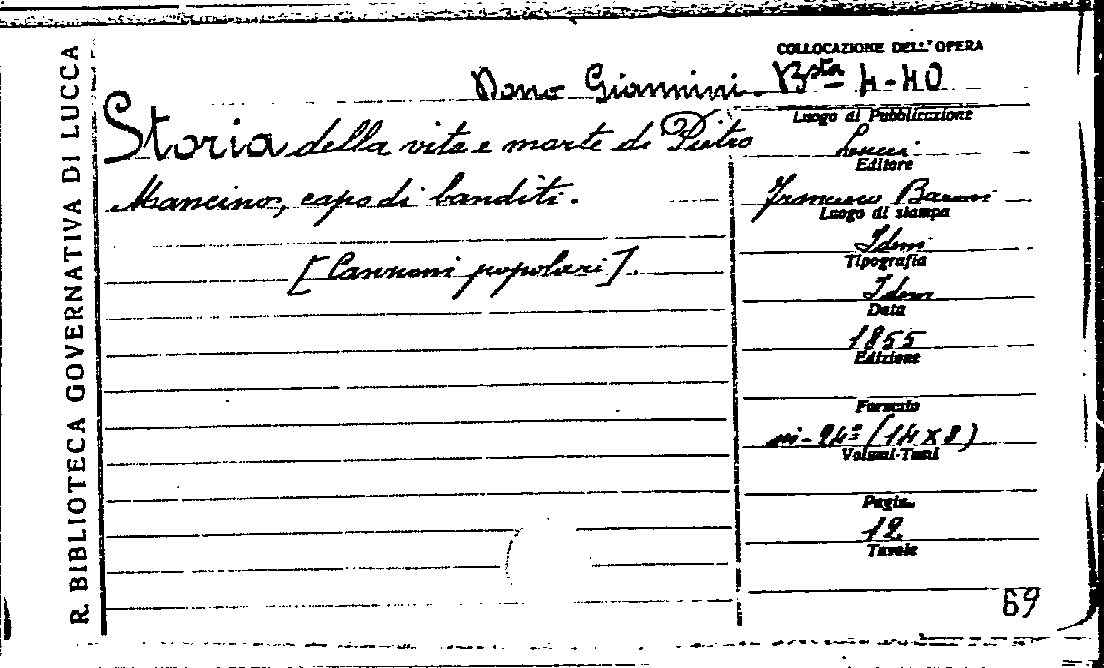 R. BIBLIOTECA GOVERNATIVA DI LUCCA
COLLOCAZIONE DELL'OPERA
Dono Giannini - Bsta 4-40
Luogo di Pubblicazione
Storia della vita e morte di Pietro
Mancino, capo di banditi.
[Canzoni popolari].
Lucca
Editore
Francesco Baroni
Luogo di stampa
Idem
Tipografia
Idem
Data
1855
Edizione
Formato
in-24° (14 x 8)
Volumi-Tomi
Pagin.
12
Tavole
69